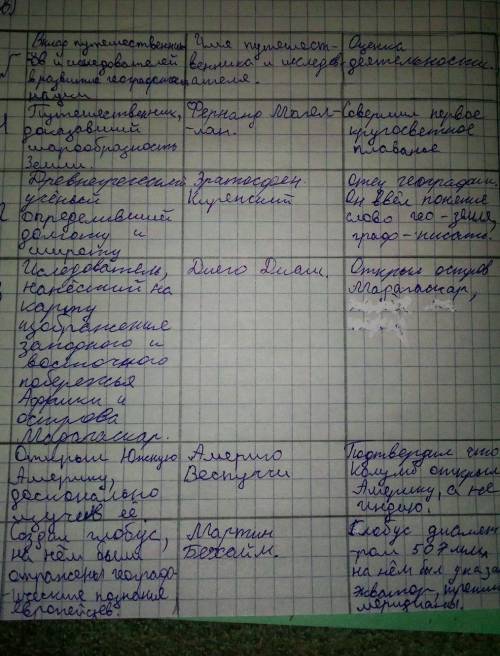 Вклад путешественни-
ков и исследователей
в развитие географической
науки
Имя путешест-
венника и исследов-
ателя.
Оценка
деятельности.
1
Путешественник,
доказавший
шарообразность
Земли.
Фернанд Магел-
-лан.
Совершил первое
кругосветное
плаванье
2
Древнегреческий
учёный
определивший
долготу и
широту
Эратосфен
Киренский
Отец географии.
Он ввёл понение
слово гео-земля,
графо-писать.
Иследователь,
нанёсший на
карту
изображение
западного и
восточного
побережья
Африки и
острова
Мадагаскар.
Диего Диаш.
Открыл остров
Мадагаскар,
Открыл Южную
Америку,
досконально
изучив её.
Америго
Веспуччи
Подтвердил что
Колумб открыл
Америку, а не
Индию.
Создал глобус,
на нём были
отражены географ-
ические познания
европейцев.
Мартин
Бехайм.
Глобус диамет-
-ром 507 мм,
на нём был указа
экватор, тропики
меридианы.